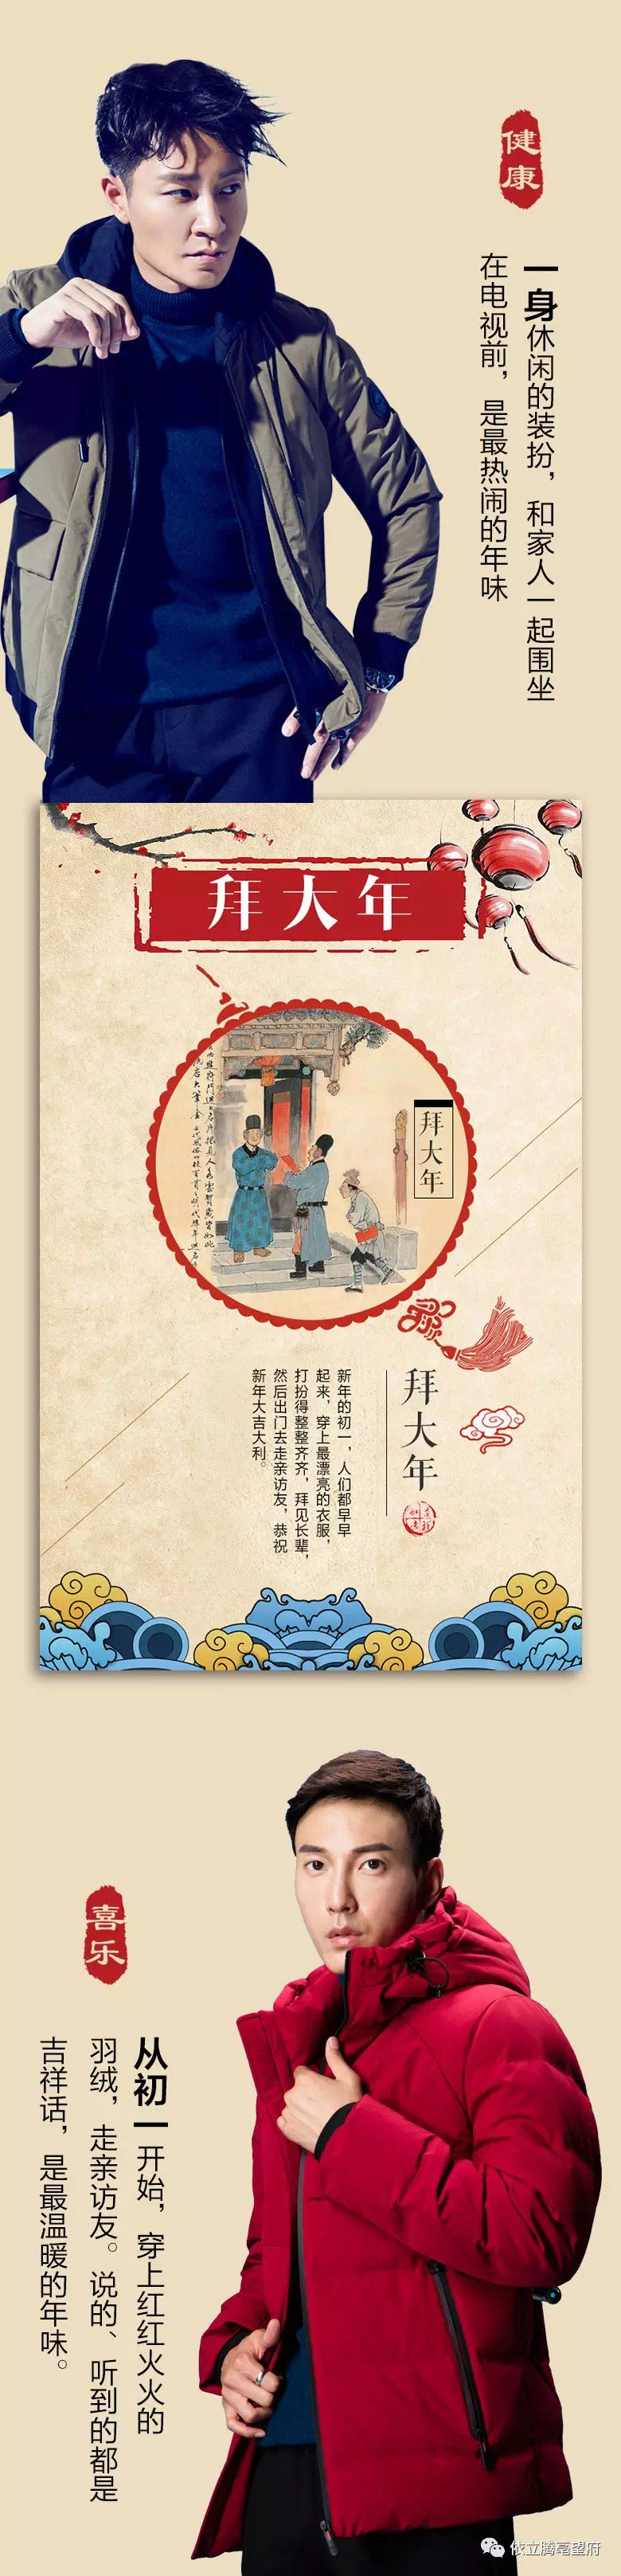 健康
一身休闲的装扮，和家人一起围坐
在电视前，是最热闹的年味
拜大年
拜大年
拜大年
新年的初一，人们都早早
起来，穿上最漂亮的衣服，
打扮得整整齐齐，拜见长辈，
然后出门去走亲访友，恭祝
新年大吉大利。
喜乐
从初一开始，穿上红红火火的
羽绒，走亲访友。说的、听到的都是
吉祥话，是最温暖的年味。
依立腾亳望府